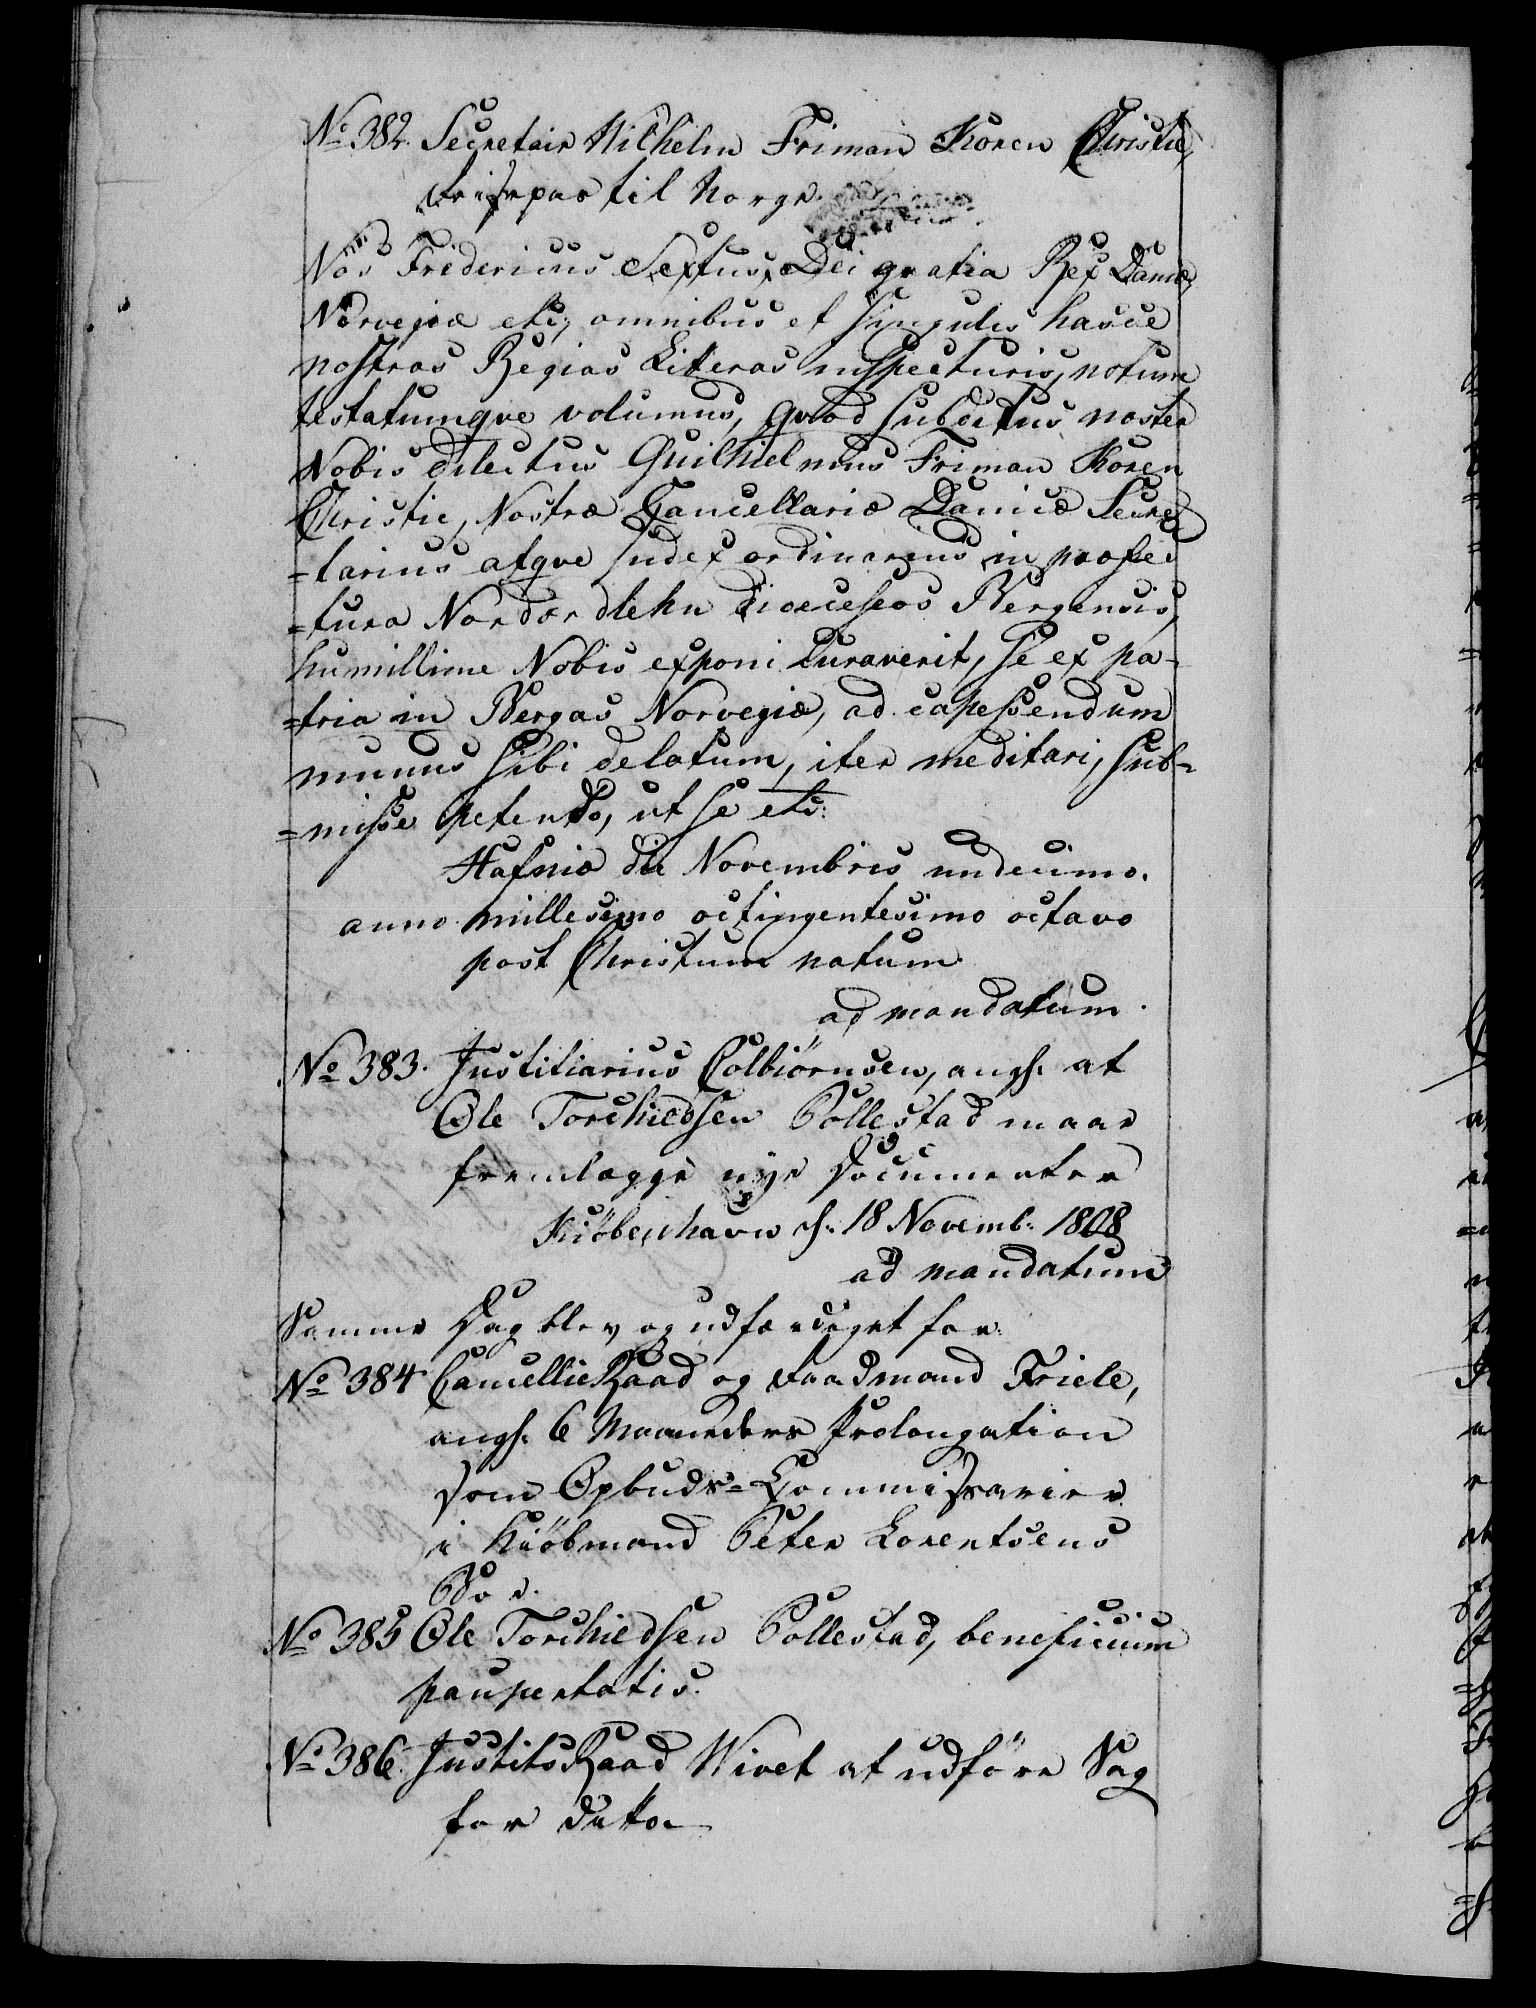 No 382. Secretair Wilhelm Friman Koren Christie,
Reisepas til Norge.
Nos Fridericus Sextus, Dei gratia Rex Daniæ,
Norvegiæ etc; omnibus et singulis hasce
nostras Regias Litteras inspecturis, notum
testatumqve volumus, qvod subditus noster
Nobis dilectus Guilhielmus Friman Koren
Christie, Nostræ Cancellariæ Danicæ Secre-
=tarius atqve judex ordinarius in præfec
=tura Nordhordlehn dioeceseos Bergensis,
humillime Nobis exponi curaverit, se ex pa-
=tria in Bergas Norvegiæ, ad capessendum
munus sibi delatum, iter meditari, sub=
=misse petendo, ut se etc:
Hafniæ die Novembris undecimo.
anno millesimo octingentesimo octavo
post Christum natum.
ad mandatum.
No 383. Justitiarius Colbiørnsen, angl. at
Ole Torchieldsen Pollestad maae
fremlægge nye Documenter
Kiöbenhavn d. 18 Novemb. 1808
ad mandatum
Samme Dag blev og udfærdiget for:
No 384 CancellieRaad og Raadmand Friele,
angl. 6 Maaneders Prolongation
som Opbuds=Commissarier
i Kiöbmand Peter Lorentsens
Boe.
No 385 Ole Torchieldsen Pollestad, beneficium
paupertatis.
No 386. JustitsRaad Wivet at udföre Sag
for ditto